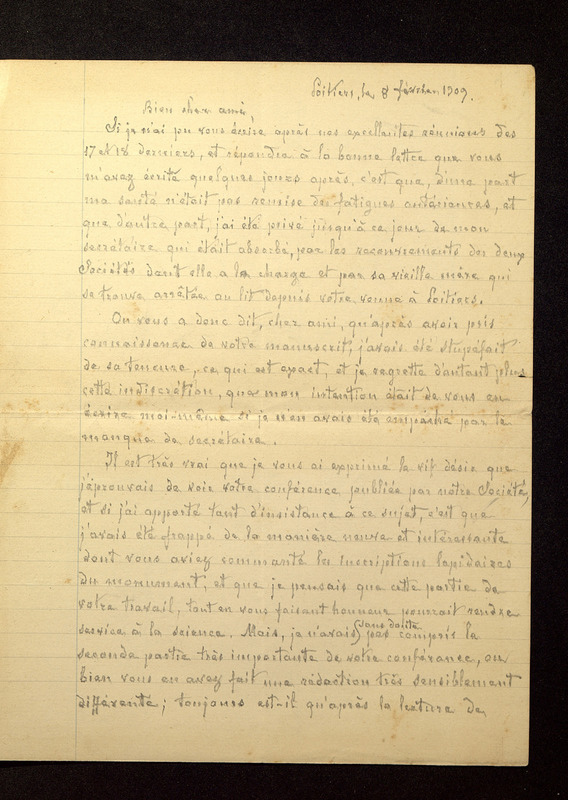 Poitiers, le 8 février 1909.
Bien cher ami,
Si je n'ai pu vous écrire après nos excellentes réunions des
17 et 18 derniers, et répondre à la bonne lettre que vous
m'avez écrite quelques jours après, c'est que, d'une part
ma santé n'était pas remise des fatigues antérieures, et
que d'autre part, j'ai été privé jusqu'à ce jour de mon
secrétaire qui était absorbé, par les recouvrements des deux
Sociétés dont elle a la charge et par sa vieille mère qui
se trouve arrêtée au lit depuis votre venue à Poitiers.
On vous a donc dit, cher ami, qu'après avoir pris
connaissance de votre manuscrit, j'avais été stupéfait
de sa teneure, ce qui est exact, et je regrette d'autant plus
cette indiscrétion, que mon intention était de vous en
écrire moi-même si je n'en avais été empêché par le
manque de secrétaire.
Il est très vrai que je vous ai exprimé le vif désir que
j'éprouvais de voir votre conférence publiée par notre Société,
et si j'ai apporté tant d'insistance à ce sujet, c'est que
j'avais été frappé de la manière neuve et intéressante
dont vous aviez commenté les Inscriptions lapidaires
du monument, et que je pensais que cette partie de
votre travail, tout en vous faisant honneur pourrait rendre
service à la science. Mais, je n'avais (sans doute) pas compris la
seconde partie très importante de votre conférence, ou
bien vous en avez fait une rédaction très sensiblement
différente; toujours est-il qu'après la lecture de